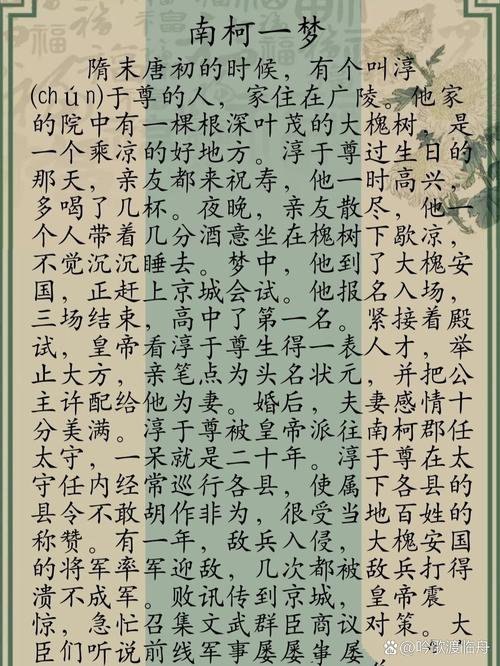 南柯一梦
隋末唐初的时候，有个叫淳
(chún)于尊的人，家住在广陵。他家
的院中有一棵根深叶茂的大槐树，是
一个乘凉的好地方。淳于尊过生日的
那天，亲友都来祝寿，他一时高兴，
多喝了几杯。夜晚，亲友散尽，他一
个人带着几分酒意坐在槐树下歇凉，
不觉沉沉睡去。梦中，他到了大槐安
国，正赶上京城会试。他报名入场，
三场结束，高中了第一名。紧接着殿
试，皇帝看淳于尊生得一表人才，举
止大方，亲笔点为头名状元，并把公
主许配给他为妻。婚后，夫妻感情十
分美满。淳于尊被皇帝派往南柯郡任
太守，一呆就是二十年。淳于尊在太
守任内经常巡行各县，使属下各县的
县令不敢胡作非为，很受当地百姓的
称赞。有一年，敌兵入侵，大槐安国
的将军率军迎敌，几次都被敌兵打得
溃不成军。败讯传到京城，皇帝震
惊，急忙召集文武群臣商议对策。大
臣们听说前线军事屡屡
@吟歌渡临舟